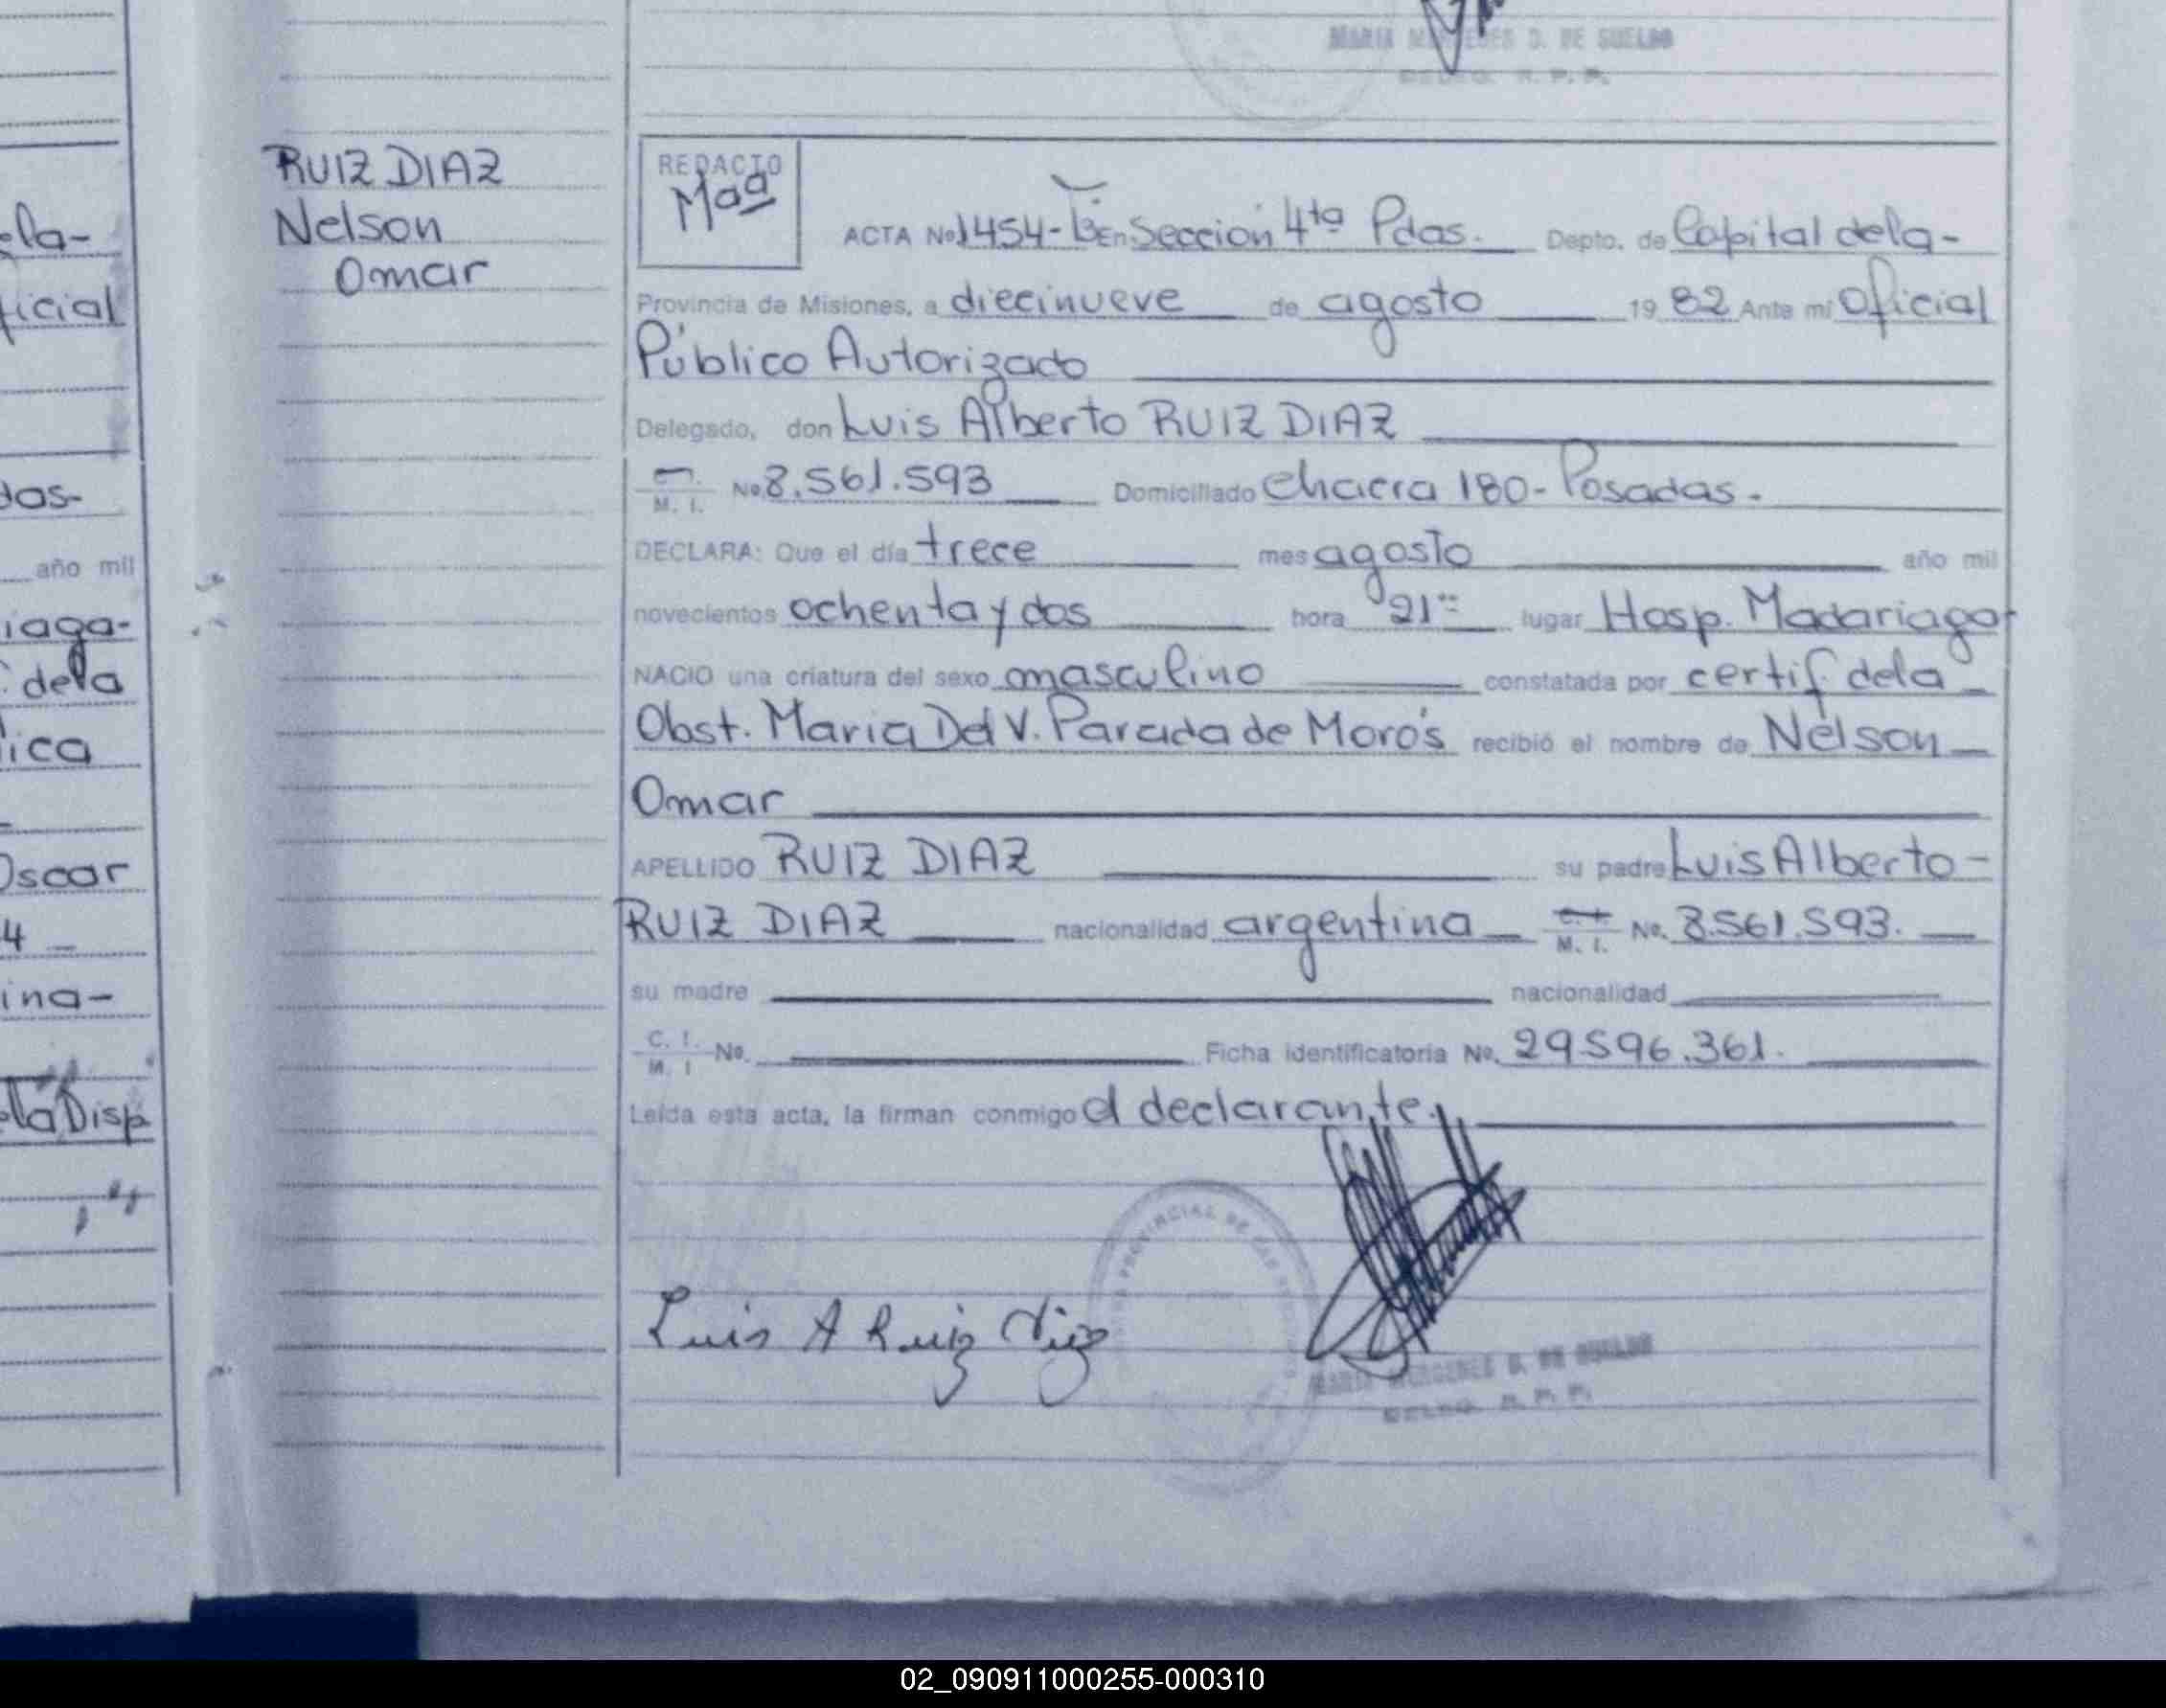 MARIA MERCEDES D. DE SUELDO
DELEG. R. P. P.
ela-
ficial
das-
año mil
iaga-
dela
ica
Oscar
4
ina-
ela Disp
RUIZ DIAZ
Nelson
Omar
REDACTO
Maª
ACTA No 1454-B En Sección 4ta Pdas. Depto. de Capital dela-
Provincia de Misiones, a diecinueve de agosto 19 82 Ante mí Oficial
Público Autorizado
Delegado, don Luis Alberto RUIZ DIAZ
M. I. No. 8.561.593 Domiciliado Chacra 180- Posadas.
DECLARA: Que el día trece mes agosto año mil
novecientos ochenta y dos hora 21 lugar Hosp. Madariaga
NACIO una criatura del sexo masculino constatada por certif dela
Obst. Maria Del V. Parada de Morós recibió el nombre de Nélson
Omar
APELLIDO RUIZ DIAZ su padre Luis Alberto-
RUIZ DIAZ nacionalidad argentina C. I. M. I. No. 8.561.593.
su madre nacionalidad
C. I. M. I No. Ficha identificatoria No. 29596.361.
Leída esta acta, la firman conmigo el declarante.
PROVINCIAL DE LAS
Luis A Ruiz Diaz
MARIA MERCEDES D. DE SUELDO
DELEG. R. P. P.
02_090911000255-000310